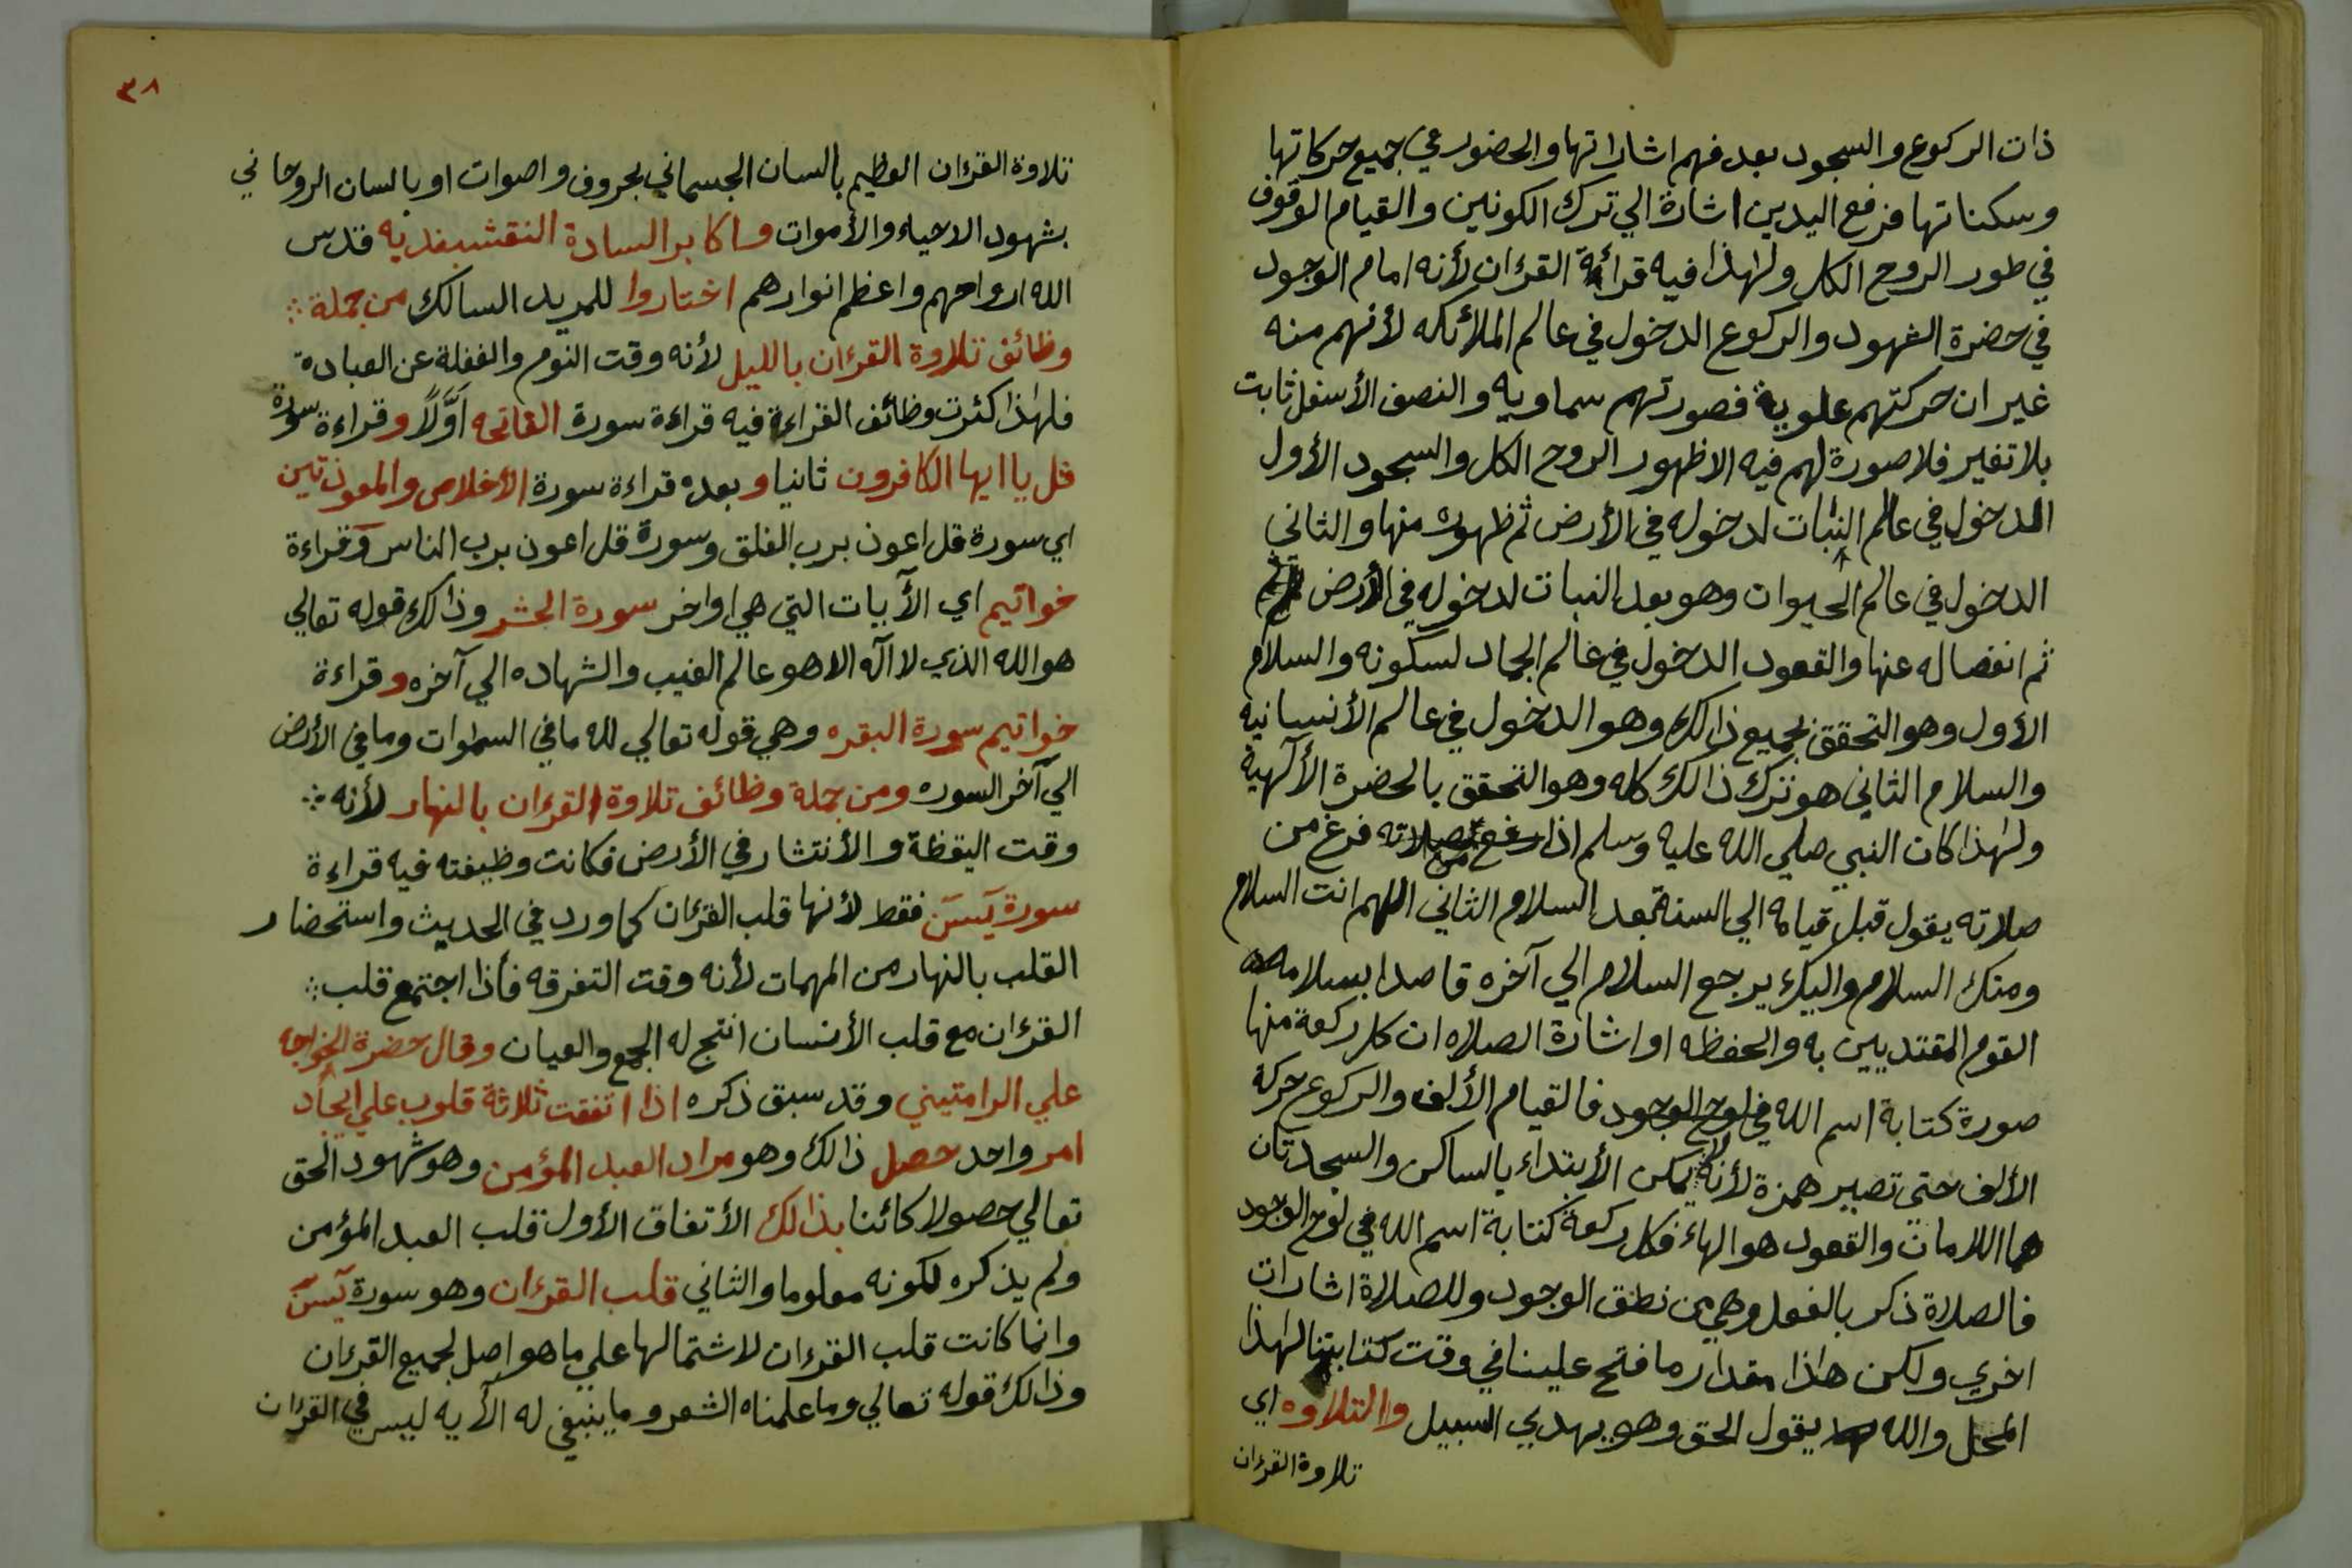 ذات الركوع والسجود بعد فهم اشاراتها والحضور في جميع حركاتها
وسكناتها فرفع اليدين اشارة الي ترك الكونين والقيام الوقوف
في طور الروح الكل ولهذا فيه قرائة القرءان لأنه امام الوجود
في حضرة الشهود والركوع الدخول في عالم الملائكه لأنهم منه
غير ان حركتهم علوية فصورتهم سماويه والنصف الأسفل ثابت
بلا تغير فلا صورة لهم فيه الا ظهور الروح الكل والسجود الأول
الدخول في عالم النبات لدخوله في الأرض ثم ظهوره منها والثاني
الدخول في عالم الحيوات وهو بعد النبات لدخوله في الأرض
ثم انفصاله عنها والقعود الدخول في عالم الجماد لسكونه والسلام
الأول وهو التحقق بجميع ذالك وهو الدخول في عالم الأنسانيه
والسلام الثاني هو ترك ذالك كله وهو التحقق بالحضرة الألٓهية
ولهذا كان النبي صلي الله عليه وسلم اذا فرغ من
صلاته يقول قبل قيامه الي السنة بعد السلام الثاني اللهم انت السلام
ومنك السلام واليك يرجع السلام الي آخره قاصدا بسلامه
القوم المقتديين به والحفظه او اشارة الصلاه ان كل ركعة منها
صورة كتابة اسم الله في لوح الوجود فالقيام الألف والركوع حركة
الألف حتى تصير همزة لأنه لا يمكن الأبتداء بالساكن والسجدتان
هما اللامان والقعود هو الهاء فكل ركعة كتابة اسم الله في لوح الوجود
فالصلاة ذكر بالفعل وهي من نطق الوجود وللصلاة اشارات
اخري ولكن هاذا مقدار ما فتح علينا في وقت كتابتنا لهذا
المحل والله يقول الحق وهو يهدي السبيل والتلاوه اي
تلاوة القرءان
٣٨
تلاوة القرءان العظيم بالسان الجسماني بحروف واصوات او بالسان الروحاني
بشهود الاحياء والأموات واكابر السادة النقشبنديه قدس
الله ارواحهم واعظم انوارهم اختاروا للمريد السالك من جملة
وظائف تلاوة القرءان بالليل لأنه وقت النوم والغفلة عن العبادة
فلهذا كثرت وظائف القراءة فيه قراءة سورة الفاتحه اوَّلاً وقراءة سورة
قل يا ايها الكافرون ثانيا وبعده قراءة سورة الأخلاص والمعوذتين
اي سورة قل اعوذ برب الفلق وسورة قل اعوذ برب الناس وقراءة
خواتيم اي الآيات التي هي اواخر سورة الحشر وذالك قوله تعالي
هو الله الذي لا اله الا هو عالم الغيب والشهاده الي آخره وقراءة
خواتيم سورة البقره وهي قوله تعالي لله ما في السموات وما في الأرض
الي آخر السوره ومن جملة وظائف تلاوة القرءان بالنهار لأنه
وقت اليقظة والأنتشار في الأرض فكانت وظيفته فيه قراءة
سورة يٓسٓ فقط لأنها قلب القرءان كما ورد في الحديث واستحضار
القلب بالنهار من المهمات لأنه وقت التفرقه فأذا اجتمع قلب
القرءان مع قلب الأنسان انتج له الجمع والعيان وقال حضرة الخواجه
علي الرامتيني وقد سبق ذكره اذا اتفقت ثلاثة قلوب علي ايجاد
امر واحد حصل ذالك وهو مراد العبد المؤمن وهو شهود الحق
تعالي حصولا كائنا بذالك الأتفاق الأول قلب العبد المؤمن
ولم يذكره لكونه معلوما والثاني قلب القرءان وهو سورة يٓسٓ
وانما كانت قلب القرءان لاشتمالها علي ما هو اصل لجميع القرءان
وذالك قوله تعالي وما علمناه الشعر وما ينبغي له الأيه ليس في القرءان